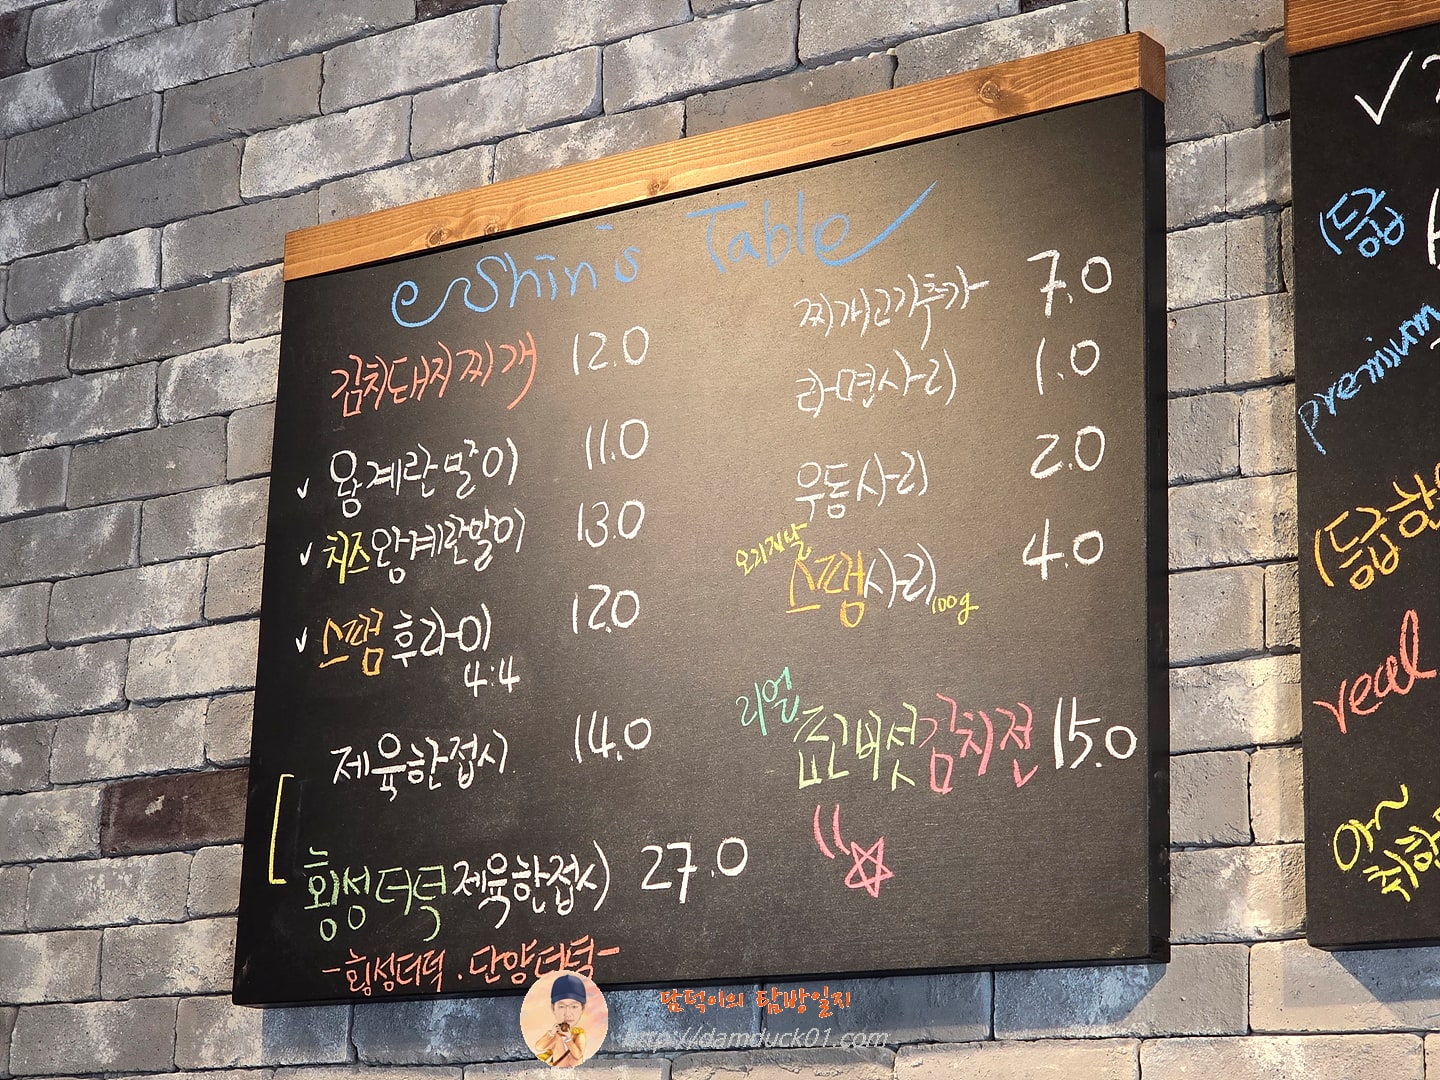 eShin's Table
김치돼지찌개 12.0
✓ 왕계란말이 11.0
✓ 치즈왕계란말이 13.0
✓ 스팸후라이 12.0
4:4
제육한접시 14.0
횡성더덕제육한접시 27.0
-횡성더덕. 단양더덕-
찌개고기추가 7.0
라면사리 1.0
우동사리 2.0
오리지날
스팸사리 4.0
100g
리얼
표고버섯김치전 15.0
(등급
premium
(등급
real
아~
담덕이의 탐방일지
http://damduck01.com